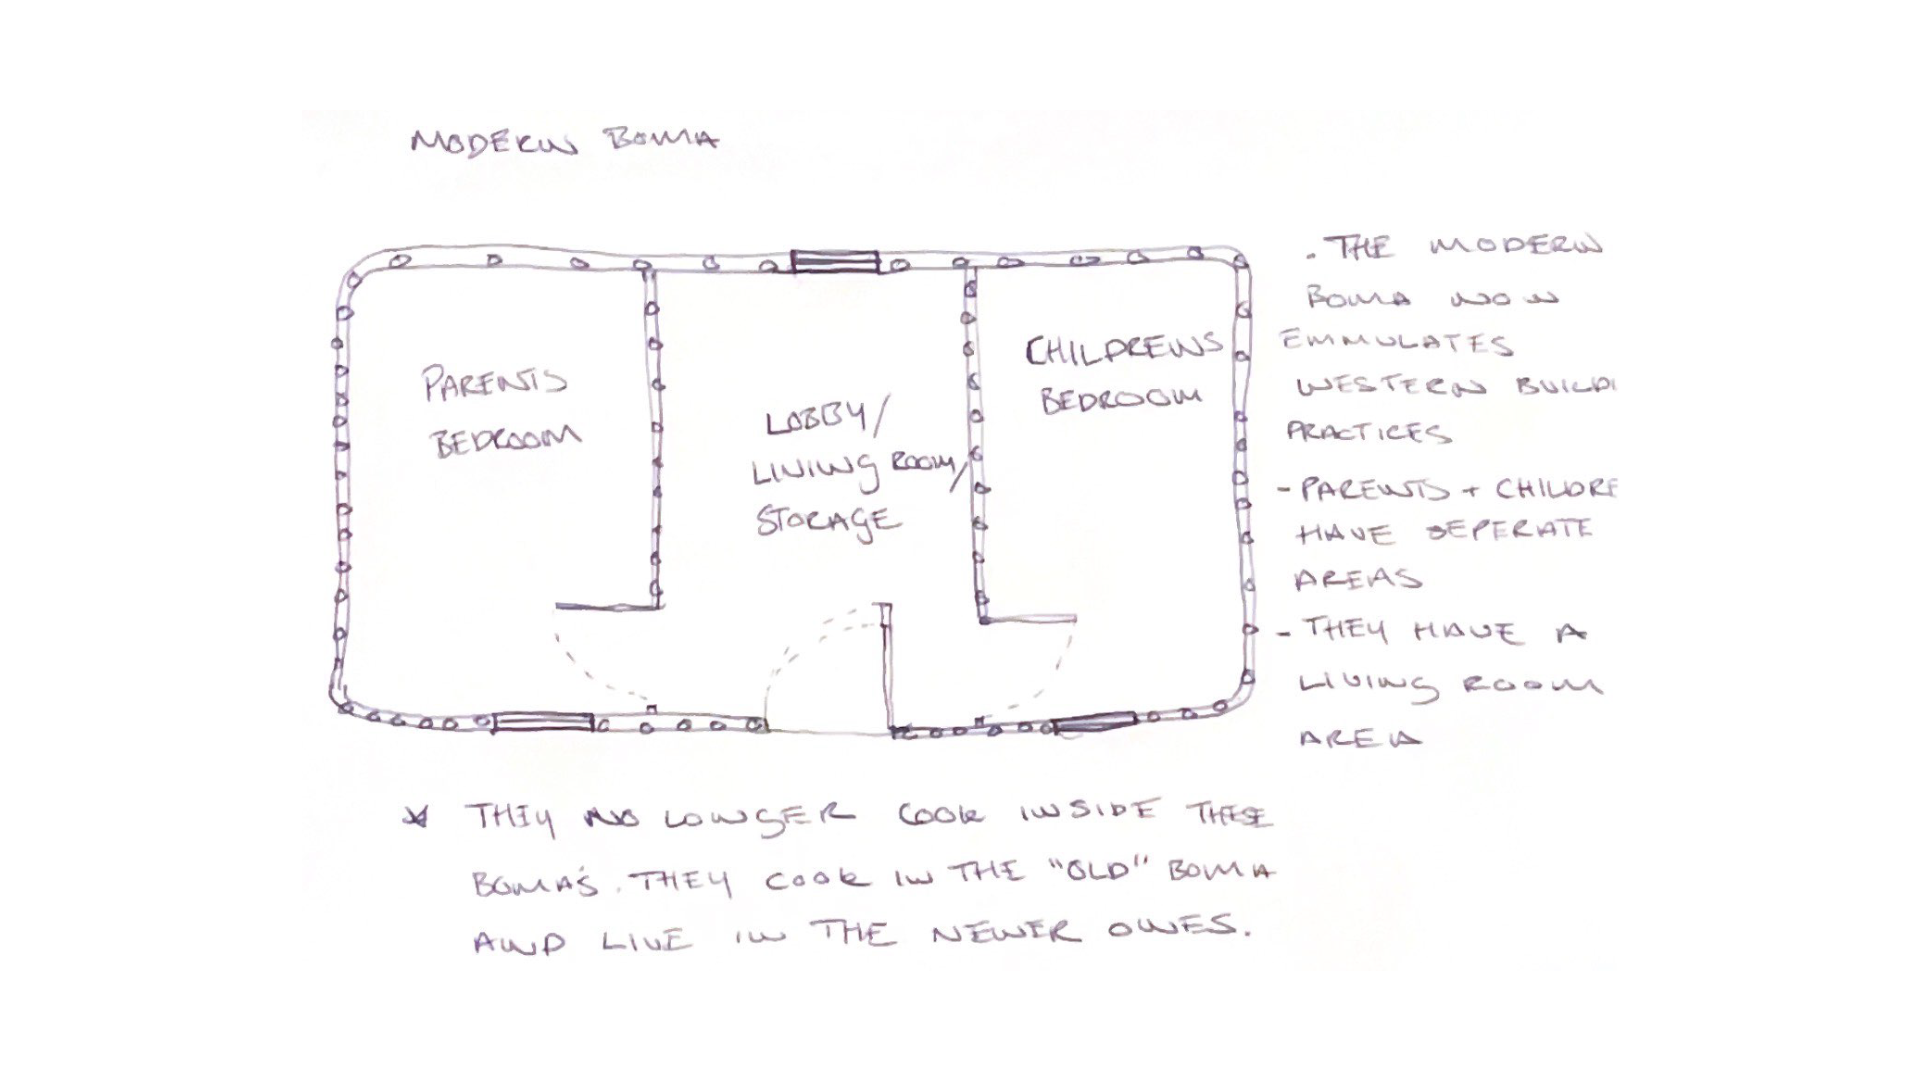 MODERN BOMA
PARENTS
BEDROOM
LOBBY/
LIVING ROOM/
STORAGE
CHILDRENS
BEDROOM
. THE MODERN
BOMA NOW
EMMULATES
WESTERN BUILDI
PRACTICES
- PARENTS + CHILDRE
HAVE SEPERATE
AREAS
- THEY HAVE A
LIVING ROOM
AREA
* THEY NO LONGER COOK INSIDE THESE
BOMA'S. THEY COOK IN THE "OLD" BOMA
AND LIVE IN THE NEWER ONES.